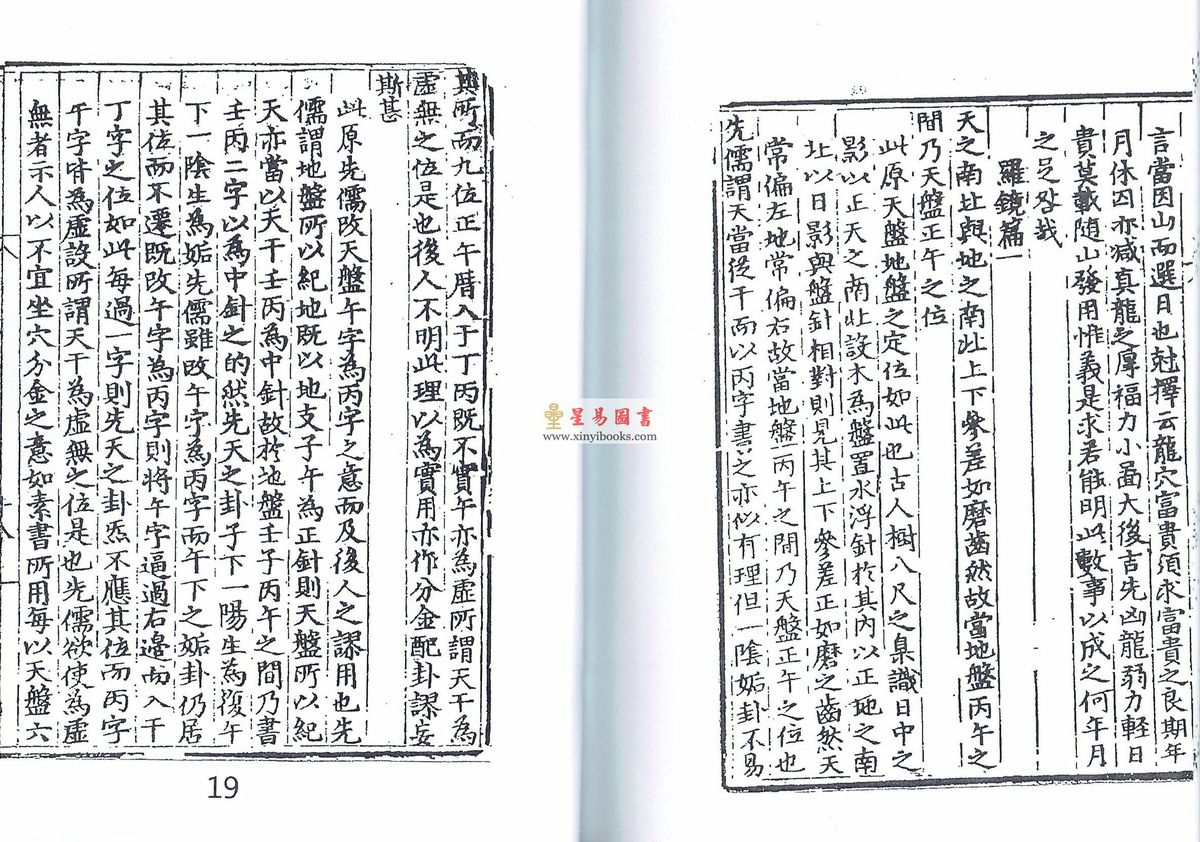 言當因山而選日也尅擇云龍穴富貴須求富貴之良期年
月休囚亦減真龍之厚福力小啚大後吉先凶龍弱力輕日
貴莫載随山發用惟義是求君能明此數事以成之何年月
之足㫖哉
羅鏡篇一
天之南北與地之南北上下參差如磨齒然故當地盤丙午之
間乃天盤正午之位
此原天盤地盤之定位如此也古人樹八尺之臬識日中之
影以正天之南北設木為盤置水浮針於其內以正地之南
北以日影與盤針相對則見其上下參差正如磨之齒然天
常偏左地常偏右故當地盤丙午之間乃天盤正午之位也
先儒謂天當後干而以丙字書之亦似有理但一陰姤卦不易
其所而九位正午曆入于丁丙既不實午亦為虛所謂天干為
虛無之位是也後人不明此理以為實用亦作分金配卦謬妄
斯甚
此原先儒改天盤午字為丙字之意而及後人之謬用也先
儒謂地盤所以紀地既以地支子午為正針則天盤所以紀
天亦當以天干壬丙為中針故於地盤壬子丙午之間乃書
壬丙二字以為中針之的然先天之卦子下一陽生為復午
下一陰生為姤先儒雖改午字為丙字而午下之姤卦仍居
其位而不遷既改午字為丙字則將午字逼過右邊而入干
丁字之位如此每過一字則先天之卦炁不應其位而丙字
午字皆為虛設所謂天干為虛無之位是也先儒欲使為虛
無者示人以不宜坐穴分金之意如素書所用每以天盤六
19
星易圖書
www.xinyibooks.com